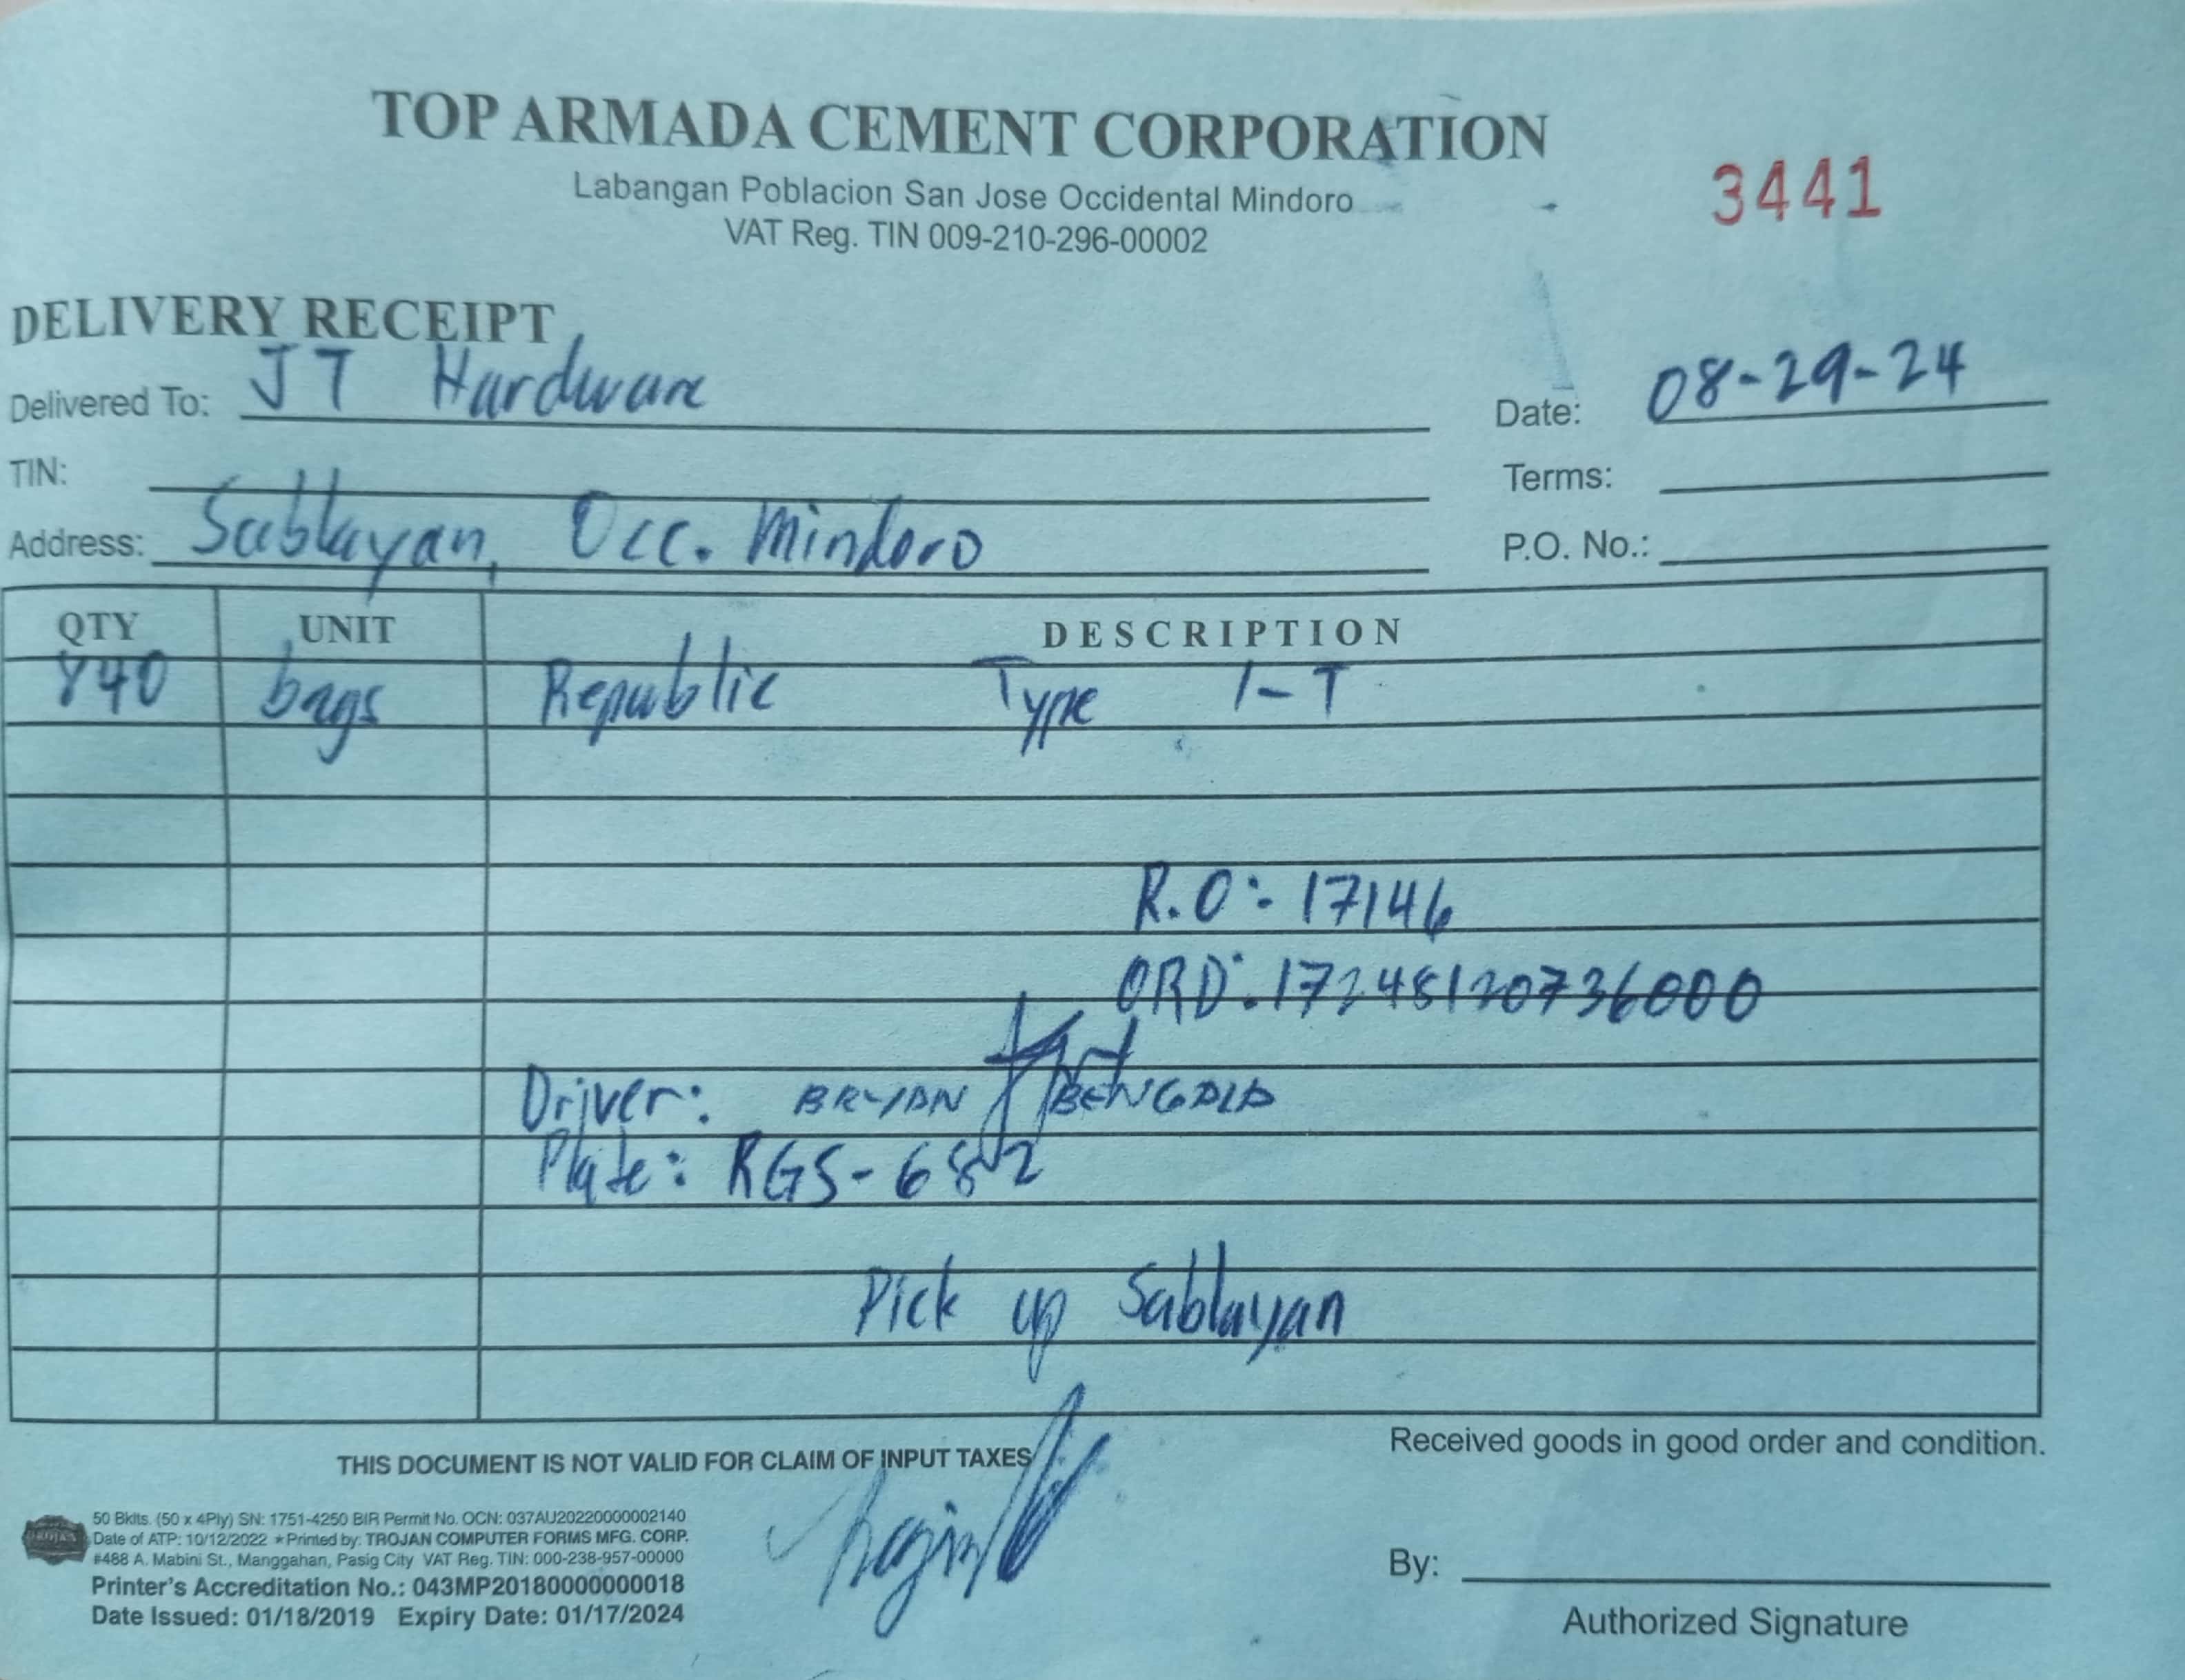 TOP ARMADA CEMENT CORPORATION
Labangan Poblacion San Jose Occidental Mindoro
VAT Reg. TIN 009-210-296-00002
3441
DELIVERY RECEIPT
Delivered To: JT Hardware
Date: 08-29-24
TIN:
Terms:
Address: Sablayan, Occ. Mindoro
P.O. No.:
QTY UNIT DESCRIPTION
840 bags Republic Type 1-T
R.O: 17146
ORD: 17248120736000
Driver: BRYAN
Plate: RGS-682
Pick up Sablayan
THIS DOCUMENT IS NOT VALID FOR CLAIM OF INPUT TAXES
Received goods in good order and condition.
50 Bklts. (50 x 4Ply) SN: 1751-4250 BIR Permit No. OCN: 037AU20220000002140
Date of ATP: 10/12/2022 ★Printed by: TROJAN COMPUTER FORMS MFG. CORP.
#488 A. Mabini St., Manggahan, Pasig City VAT Reg. TIN: 000-238-957-00000
Printer's Accreditation No.: 043MP20180000000018
Date Issued: 01/18/2019 Expiry Date: 01/17/2024
By:
Authorized Signature